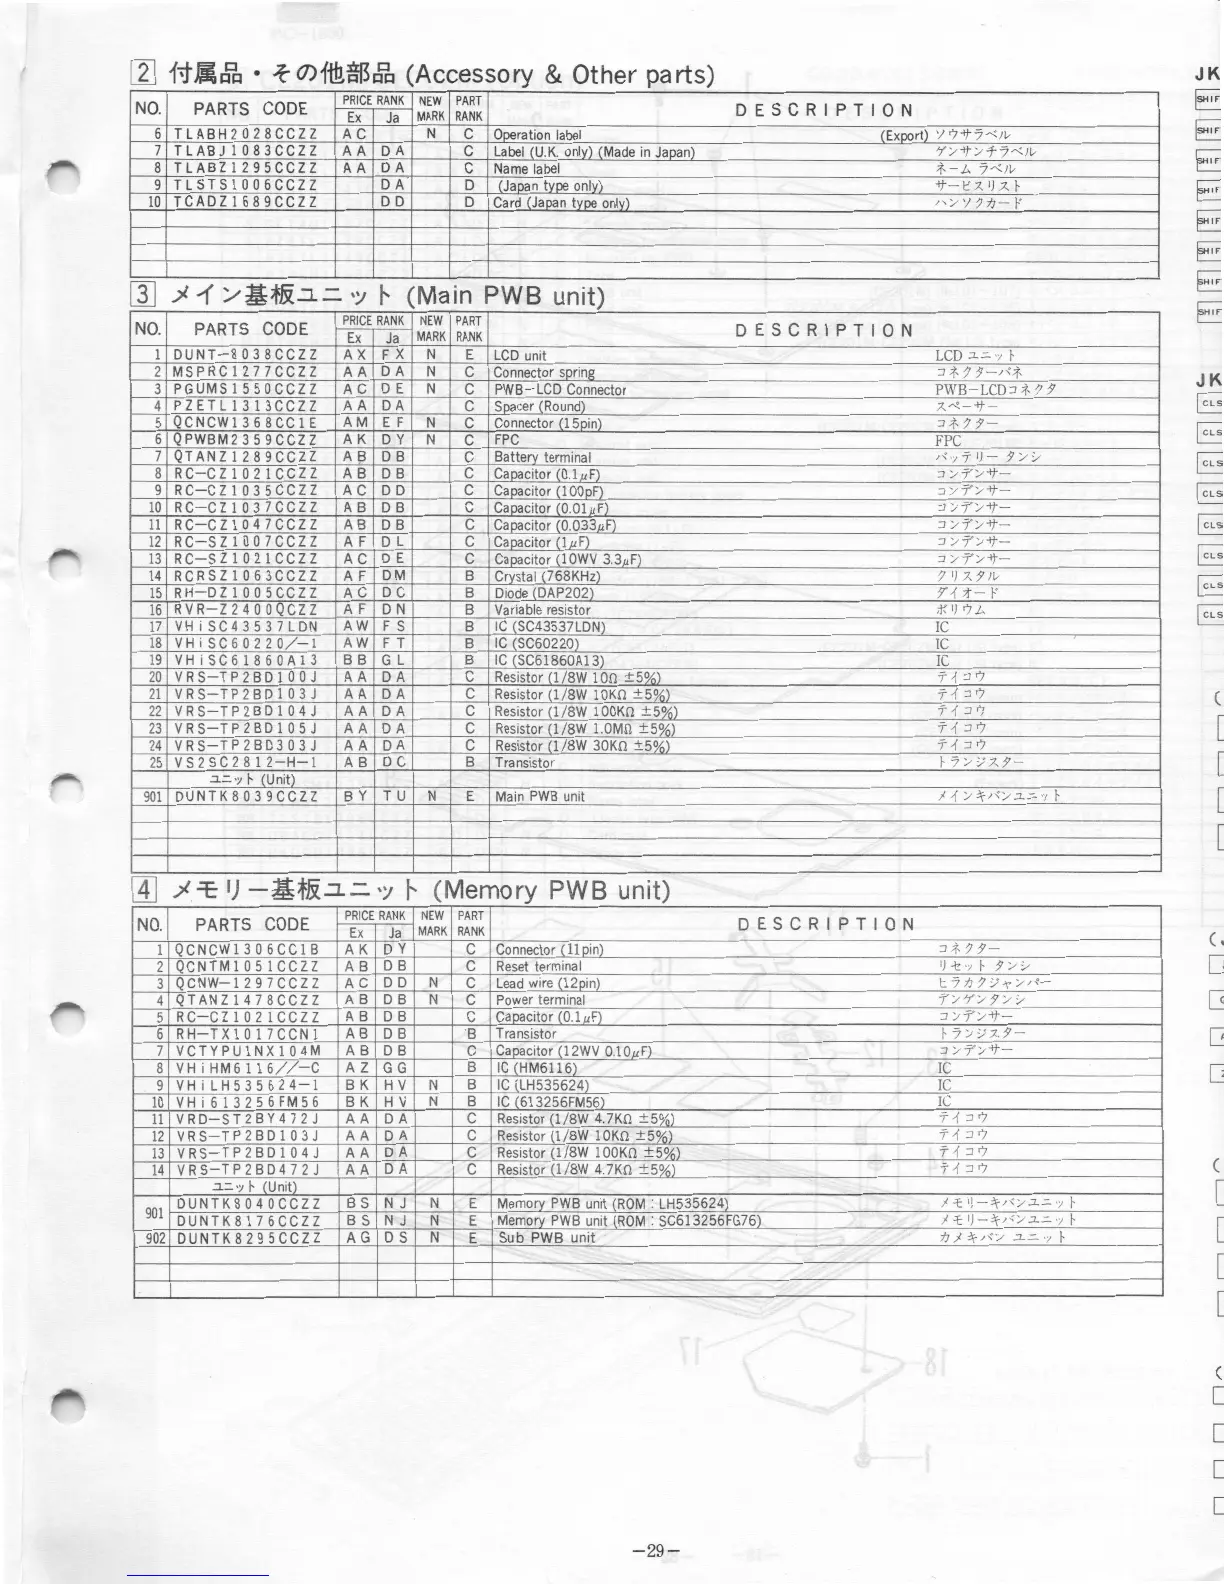 2 付属品・その他部品 (Accessory & Other parts)
NO. PARTS CODE PRICE RANK Ex Ja NEW MARK PART RANK DESCRIPTION
6 TLABH2028CCZZ AC N C Operation label (Export) ソウサラベル
7 TLABJ1083CCZZ AA DA C Label (U.K. only) (Made in Japan) ゲンサンチラベル
8 TLABZ1295CCZZ AA DA C Name label ネーム ラベル
9 TLSTS1006CCZZ DA D (Japan type only) サービスリスト
10 TCADZ1689CCZZ DD D Card (Japan type only) ハンソクカード
3 メイン基板ユニット (Main PWB unit)
NO. PARTS CODE PRICE RANK Ex Ja NEW MARK PART RANK DESCRIPTION
1 DUNT-8038CCZZ AX FX N E LCD unit LCDユニット
2 MSPRC1277CCZZ AA DA N C Connector spring コネクターバネ
3 PGUMS1550CCZZ AC DE N C PWB-LCD Connector PWB-LCDコネクタ
4 PZETL1313CCZZ AA DA C Spacer (Round) スペーサー
5 QCNCW1368CC1E AM EF N C Connector (15pin) コネクター
6 QPWBM2359CCZZ AK DY N C FPC FPC
7 QTANZ1289CCZZ AB DB C Battery terminal バッテリー タンシ
8 RC-CZ1021CCZZ AB DB C Capacitor (0.1μF) コンデンサー
9 RC-CZ1035CCZZ AC DD C Capacitor (100pF) コンデンサー
10 RC-CZ1037CCZZ AB DB C Capacitor (0.01μF) コンデンサー
11 RC-CZ1047CCZZ AB DB C Capacitor (0.033μF) コンデンサー
12 RC-SZ1007CCZZ AF DL C Capacitor (1μF) コンデンサー
13 RC-SZ1021CCZZ AC DE C Capacitor (10WV 3.3μF) コンデンサー
14 RCRSZ1063CCZZ AF DM B Crystal (768KHz) クリスタル
15 RH-DZ1005CCZZ AC DC B Diode (DAP202) ダイオード
16 RVR-Z2400QCZZ AF DN B Variable resistor ボリウム
17 VHiSC43537LDN AW FS B IC (SC43537LDN) IC
18 VHiSC60220/-1 AW FT B IC (SC60220) IC
19 VHiSC61860A13 BB GL B IC (SC61860A13) IC
20 VRS-TP2BD100J AA DA C Resistor (1/8W 10Ω ±5%) テイコウ
21 VRS-TP2BD103J AA DA C Resistor (1/8W 10KΩ ±5%) テイコウ
22 VRS-TP2BD104J AA DA C Resistor (1/8W 100KΩ ±5%) テイコウ
23 VRS-TP2BD105J AA DA C Resistor (1/8W 1.0MΩ ±5%) テイコウ
24 VRS-TP2BD303J AA DA C Resistor (1/8W 30KΩ ±5%) テイコウ
25 VS2SC2812-H-1 AB DC B Transistor トランジスター
ユニット (Unit)
901 DUNTK8039CCZZ BY TU N E Main PWB unit メインキバンユニット
4 メモリー基板ユニット (Memory PWB unit)
NO. PARTS CODE PRICE RANK Ex Ja NEW MARK PART RANK DESCRIPTION
1 QCNCW1306CC1B AK DY C Connector (11pin) コネクター
2 QCNTM1051CCZZ AB DB C Reset terminal リセット タンシ
3 QCNW-1297CCZZ AC DD N C Lead wire (12pin) ヒラカクジャンパー
4 QTANZ1478CCZZ AB DB N C Power terminal デンゲンタンシ
5 RC-CZ1021CCZZ AB DB C Capacitor (0.1μF) コンデンサー
6 RH-TX1017CCN1 AB DB B Transistor トランジスター
7 VCTYPU1NX104M AB DB C Capacitor (12WV 0.10μF) コンデンサー
8 VHiHM6116//-C AZ GG B IC (HM6116) IC
9 VHiLH535624-1 BK HV N B IC (LH535624) IC
10 VHi613256FM56 BK HV N B IC (613256FM56) IC
11 VRD-ST2BY472J AA DA C Resistor (1/8W 4.7KΩ ±5%) テイコウ
12 VRS-TP2BD103J AA DA C Resistor (1/8W 10KΩ ±5%) テイコウ
13 VRS-TP2BD104J AA DA C Resistor (1/8W 100KΩ ±5%) テイコウ
14 VRS-TP2BD472J AA DA C Resistor (1/8W 4.7KΩ ±5%) テイコウ
ユニット (Unit)
901 DUNTK8040CCZZ BS NJ N E Memory PWB unit (ROM : LH535624) メモリーキバンユニット
DUNTK8176CCZZ BS NJ N E Memory PWB unit (ROM : SC613256FG76) メモリーキバンユニット
902 DUNTK8295CCZZ AG DS N E Sub PWB unit カメキバン ユニット
-29-
JK
SHIF
SHIF
SHIF
SHIF
SHIF
SHIF
SHIF
SHIF
JK
CLS
CLS
CLS
CLS
CLS
CLS
CLS
CLS